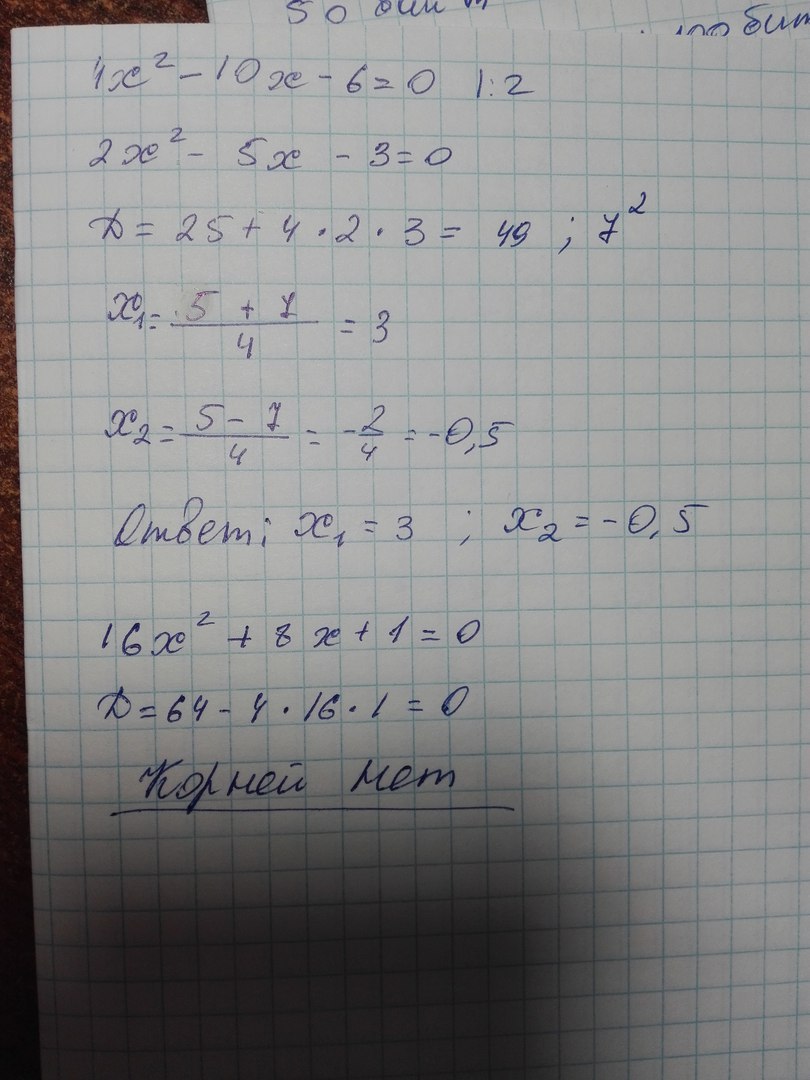 50 бит
100 бит
4x² - 10x - 6 = 0 |:2
2x² - 5x - 3 = 0
D = 25 + 4 · 2 · 3 = 49 ; 7²
x₁ = (5 + 7)/4 = 3
x₂ = (5 - 7)/4 = -2/4 = -0,5
Ответ: x₁ = 3 ; x₂ = -0,5
16x² + 8x + 1 = 0
D = 64 - 4 · 16 · 1 = 0
Корней нет